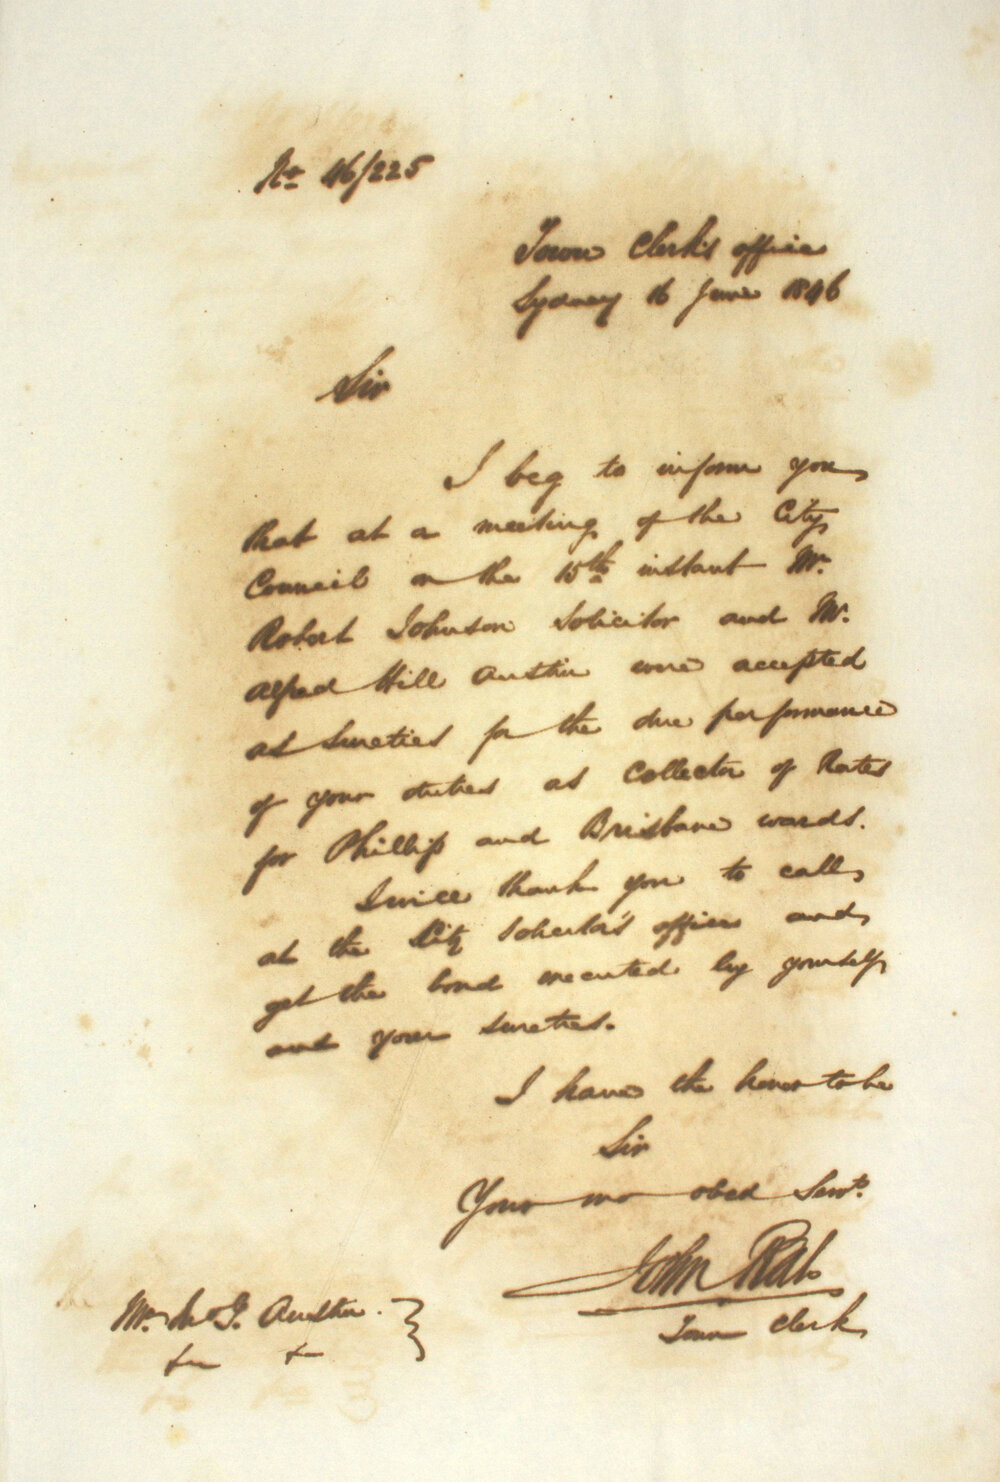 No 46/225
Town Clerk's office
Sydney 16 June 1846
Sir
I beg to inform you
that at a meeting of the City
Council on the 15th instant Mr.
Robert Johnson Solicitor and Mr.
Alfred Hill Austin were accepted
as Sureties for the due performance
of your duties as Collector of Rates
for Phillip and Brisbane wards.
I will thank you to call
at the City Solicitor's office and
get the bond executed by yourself
and your sureties.
I have the honor to be
Sir
Your mo obed Servt.
John Rae
Town Clerk
Mr. J. G. Austin.